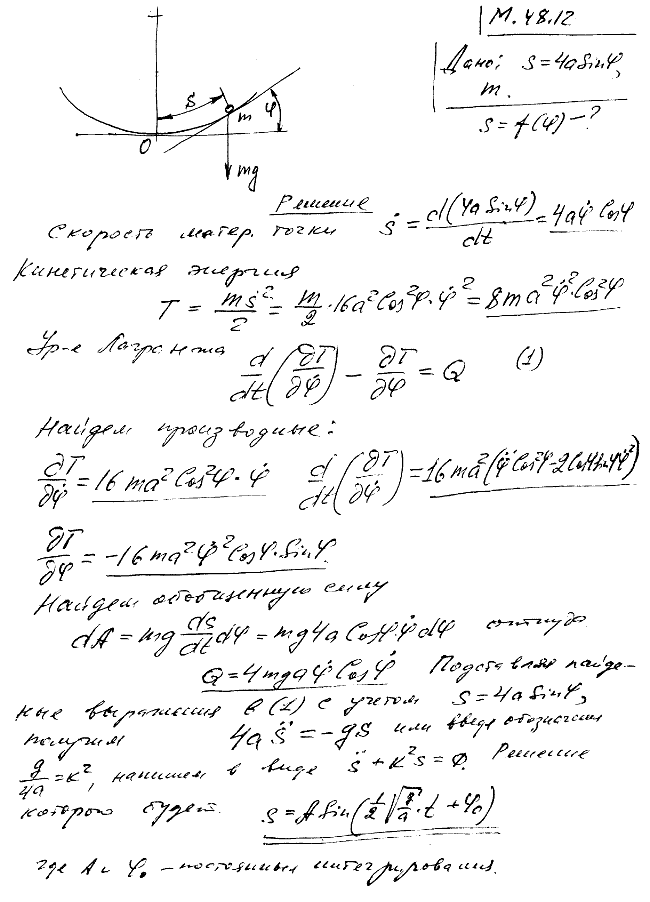 М. 48.12
Дано: s = 4a Sinφ,
m.
s = f(φ) — ?
s
m
φ
O
mg
Решение
Скорость матер. точки ṡ = d(4a Sinφ)/dt = 4aφ̇ Cosφ
Кинетическая энергия
T = mṡ²/2 = m/2 · 16a² Cos²φ · φ̇² = 8ma²φ̇² · Cos²φ
Ур-е Лагранжа d/dt (∂T/∂φ̇) − ∂T/∂φ = Q (1)
Найдем производные:
∂T/∂φ̇ = 16ma² Cos²φ · φ̇ d/dt (∂T/∂φ̇) = 16ma² (φ̈ Cos²φ − 2Cosφ Sinφ φ̇²)
∂T/∂φ = −16ma²φ̇² Cosφ · Sinφ
Найдем обобщенную силу
dA = mg ds/dt dφ = mg4a Cosφ · φ̇ dφ откуда
Q = 4mgaφ̇ Cosφ Подставляя найде-
ные выражения в (1) с учетом s = 4a Sinφ,
получим 4a s̈ = −gs или введя обозначения
g/4a = k², напишем в виде s̈ + k²s = 0. Решение
которого будет. s = A Sin(1/2 √(g/a) · t + φ₀)
где A и φ₀ — постоянные интегрирования.